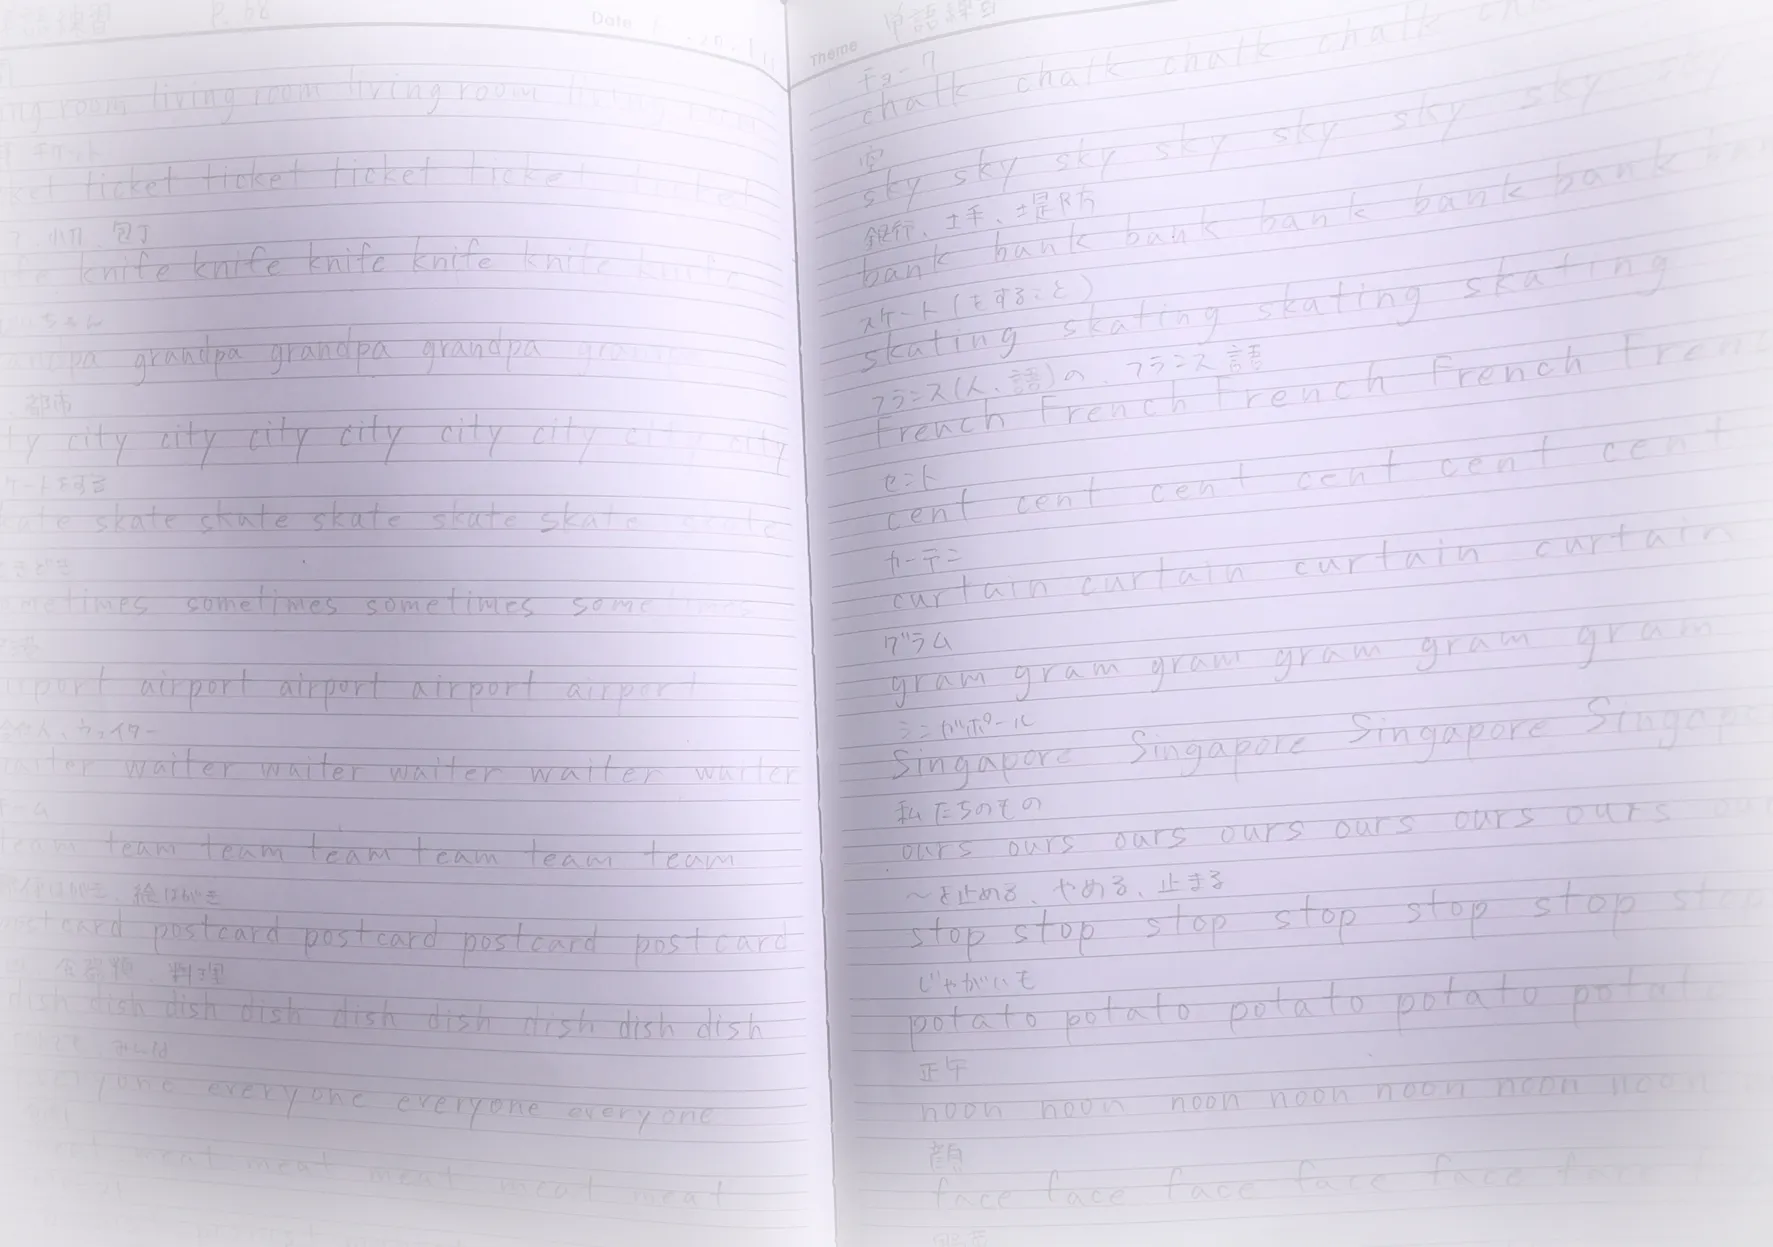 語練習 p. 68 Date
living room living room living room
チケット
ticket ticket ticket ticket ticket
小刀、包丁
knife knife knife knife knife knife
ちゃん
grandpa grandpa grandpa
都市
city city city city city city city city
ケートをする
skate skate skate skate skate skate
ときどき
sometimes sometimes sometimes sometimes
airport airport airport airport airport
ウェイター
waiter waiter waiter waiter waiter waiter
チーム
team team team team team team team
絵はがき
postcard postcard postcard postcard postcard
料理
dish dish dish dish dish dish dish dish dish
みんな
everyone everyone everyone everyone
meat meat meat meat meat
Theme 単語練習
チョーク
chalk chalk chalk chalk
空
sky sky sky sky sky sky sky sky
銀行、土手、堤防
bank bank bank bank bank bank
スケート(をすること)
skating skating skating skating
フランス(人、語)の、フランス語
French French French French
セント
cent cent cent cent cent cent
カーテン
curtain curtain curtain curtain
グラム
gram gram gram gram gram gram
シンガポール
Singapore Singapore Singapore
私たちのもの
ours ours ours ours ours ours
〜を止める、やめる、止まる
stop stop stop stop stop stop stop
じゃがいも
potato potato potato potato potato
正午
noon noon noon noon noon noon noon
顔
face face face face face face